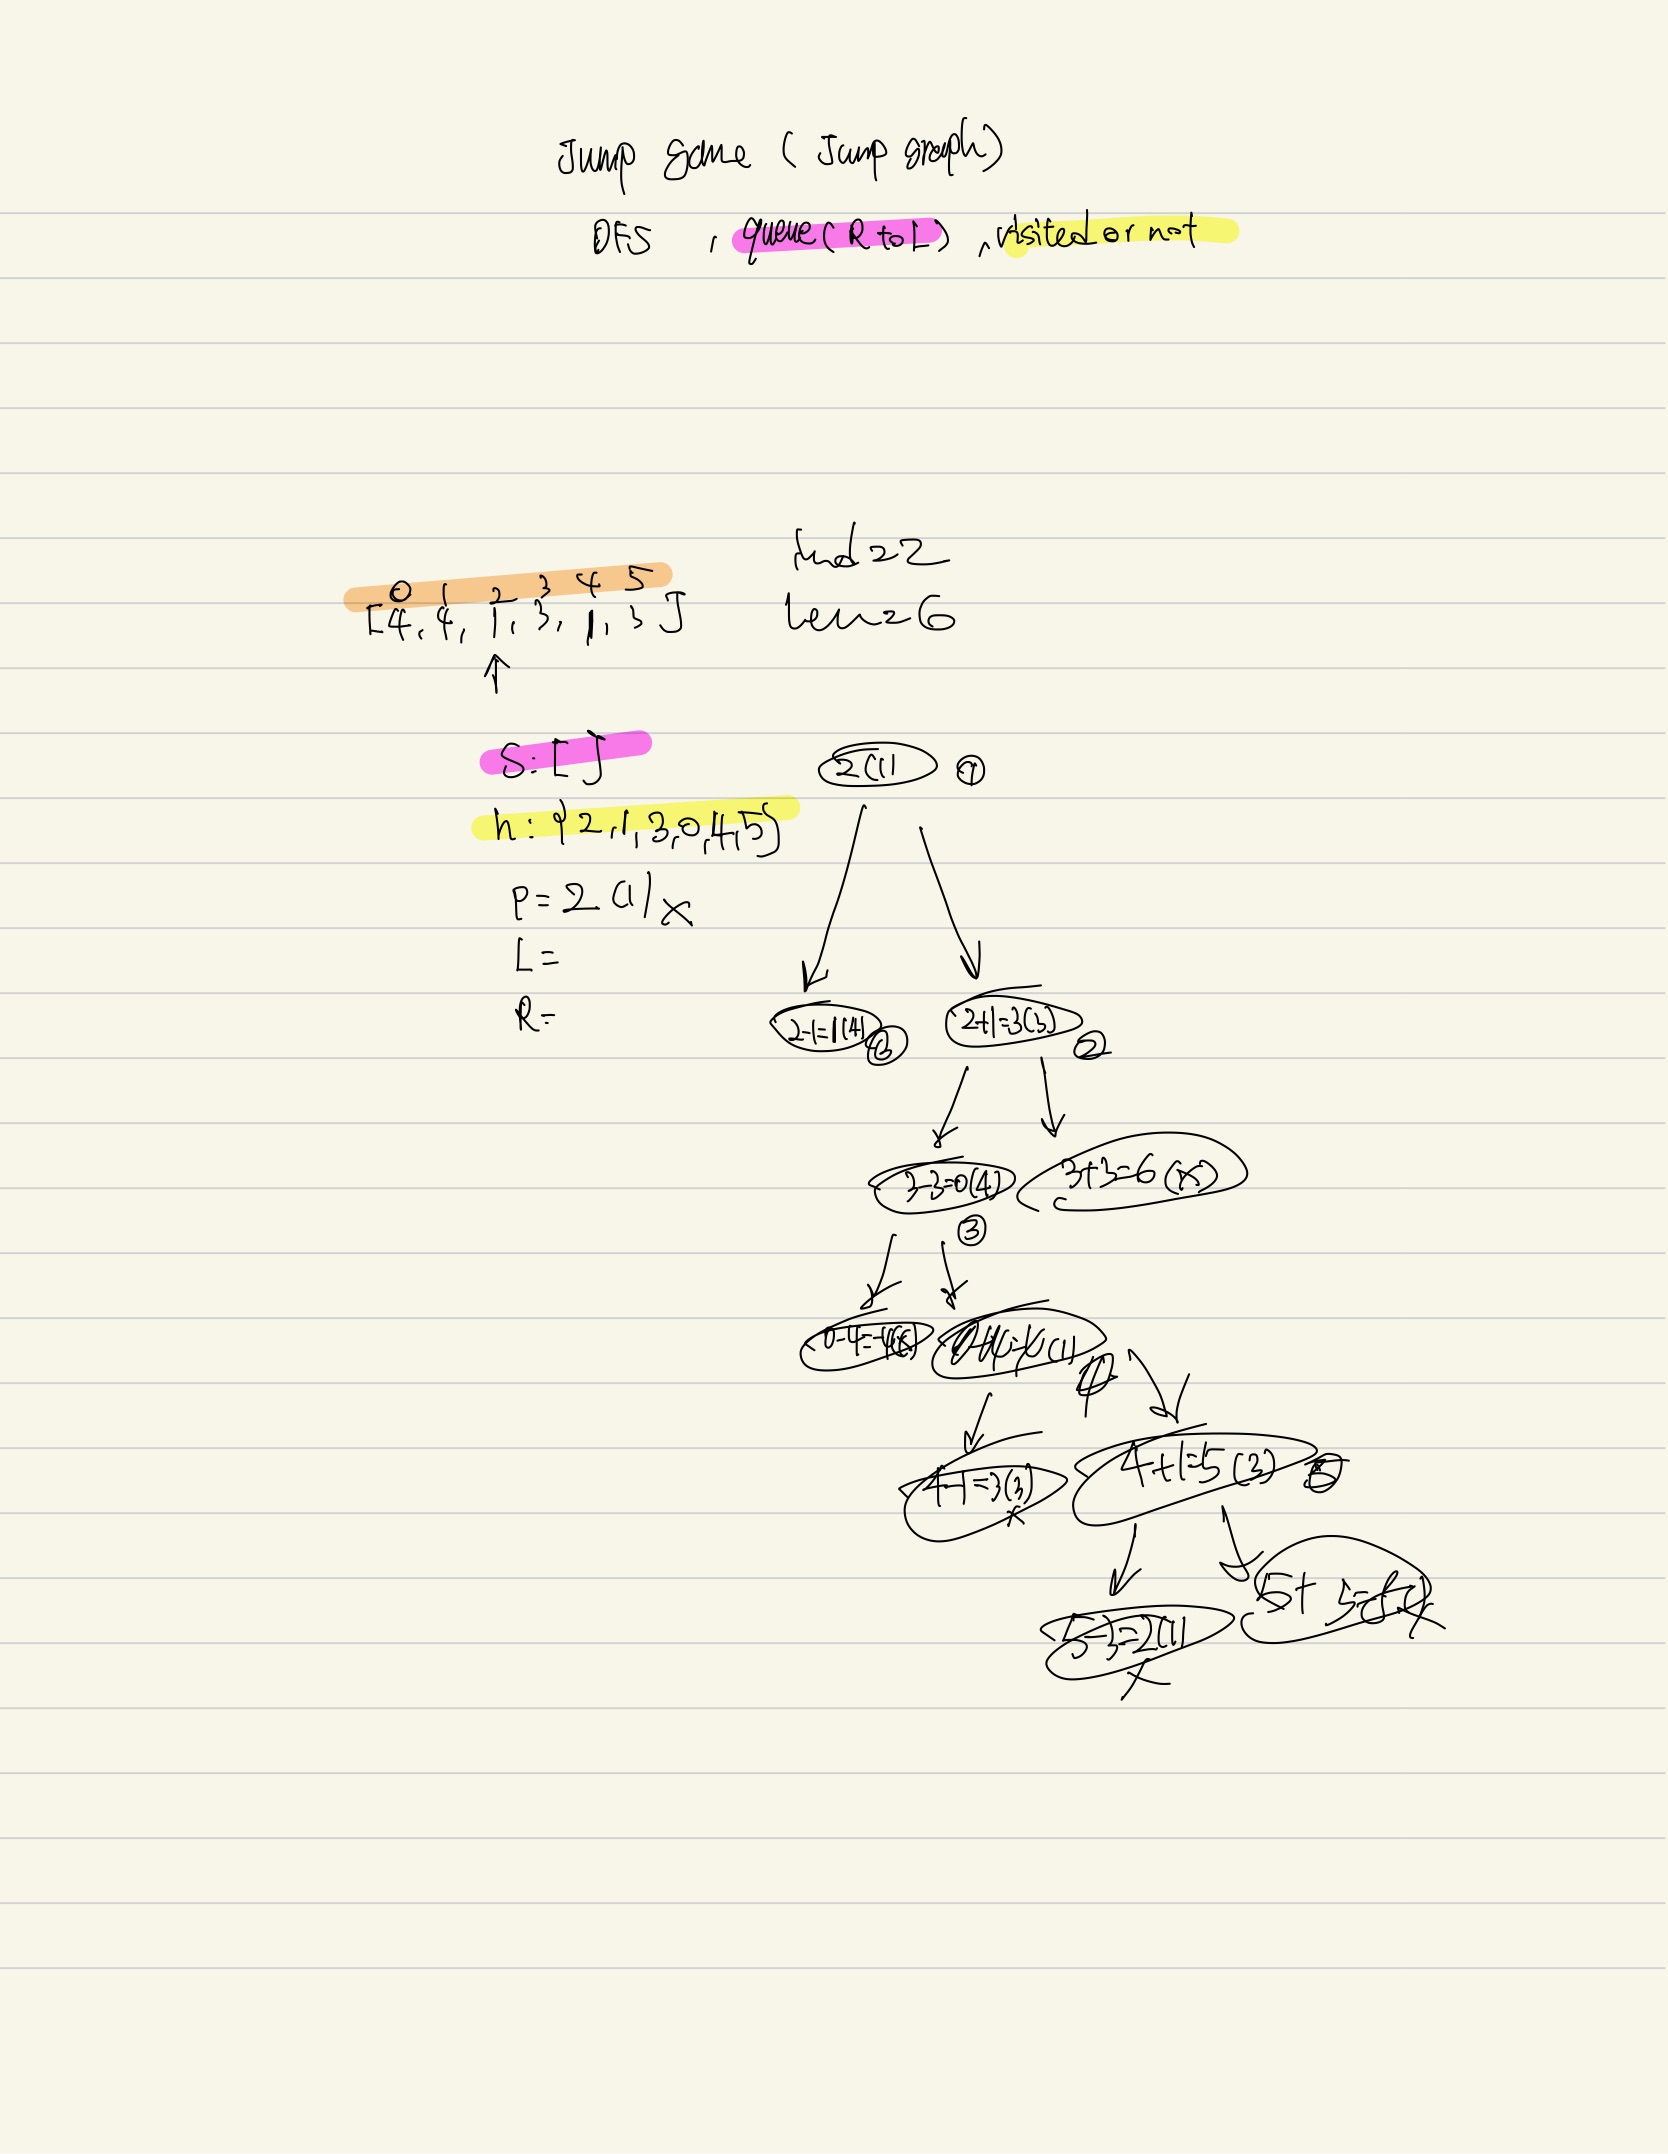 Jump game ( Jump graph)
DFS , queue ( R to L) , visited or not
ind=2
0 1 2 3 4 5
[4, 4, 1, 3, 1, 3 ]
len=6
S: [ ]
2(1) ①
h: {2,1,3,0,4,5}
P= 2 (1) x
L=
R=
2-1=1(4)
2+1=3(3) ②
3-3=0(4) ③
3+3=6 (x)
0-4=-4(x)
0+4=4(1) ④
4-1=3(3) x
4+1=5 (3) ⑤
5-3=2(1) x